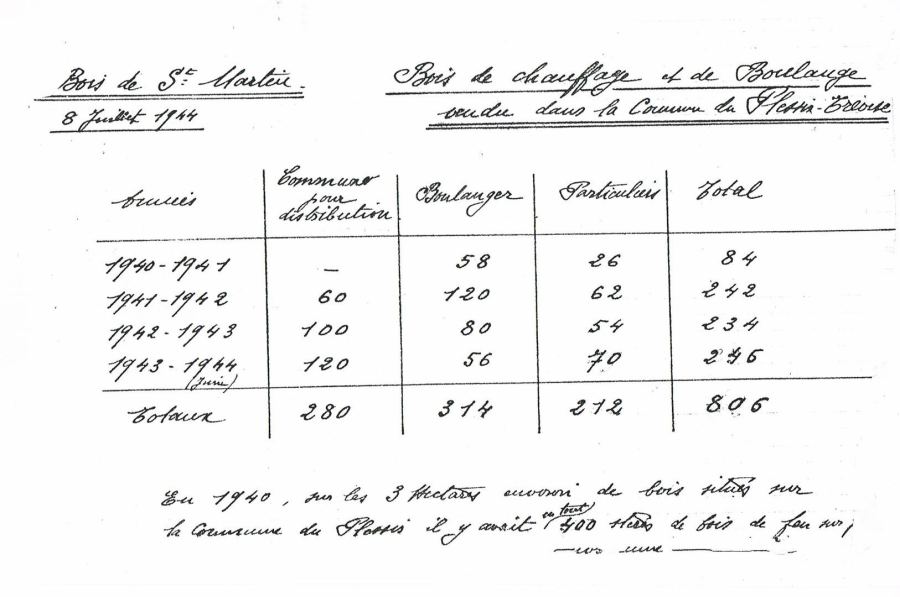 Bois de St Martin.
8 Juillet 1944
Bois de chauffage et de Boulange
vendu dans la Commune du Plessis-Trévise
Années
Commune
pour
distribution
Boulanger
Particuliers
Total
1940-1941 — 58 26 84
1941-1942 60 120 62 242
1942-1943 100 80 54 234
1943-1944 120 56 70 246
(Juin)
Totaux 280 314 212 806
En 1940, sur les 3 Hectares environ de bois situés sur
la Commune du Plessis il y avait en tout 400 stères de bois de feu sur